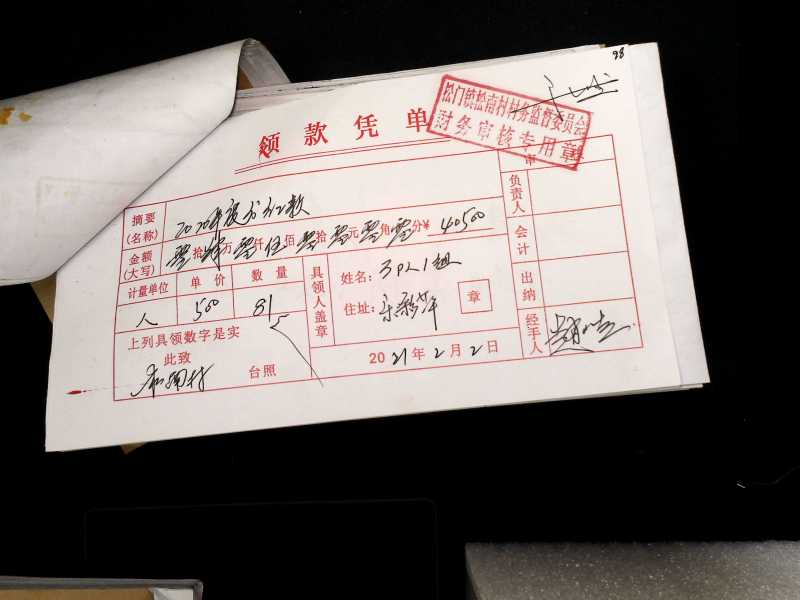 98
松门镇松南村村务监督委员会
财务审核专用章
领款凭单
摘要(名称) 2020年度分红款
金额(大写) 零拾肆万零仟伍佰零拾零元零角零分¥ 40500
计量单位 单价 数量
人 500 81
上列具领数字是实
此致
松南村 台照
具领人盖章
姓名:
住址:
章
2021年2月2日
负责人
会计
出纳
经手人